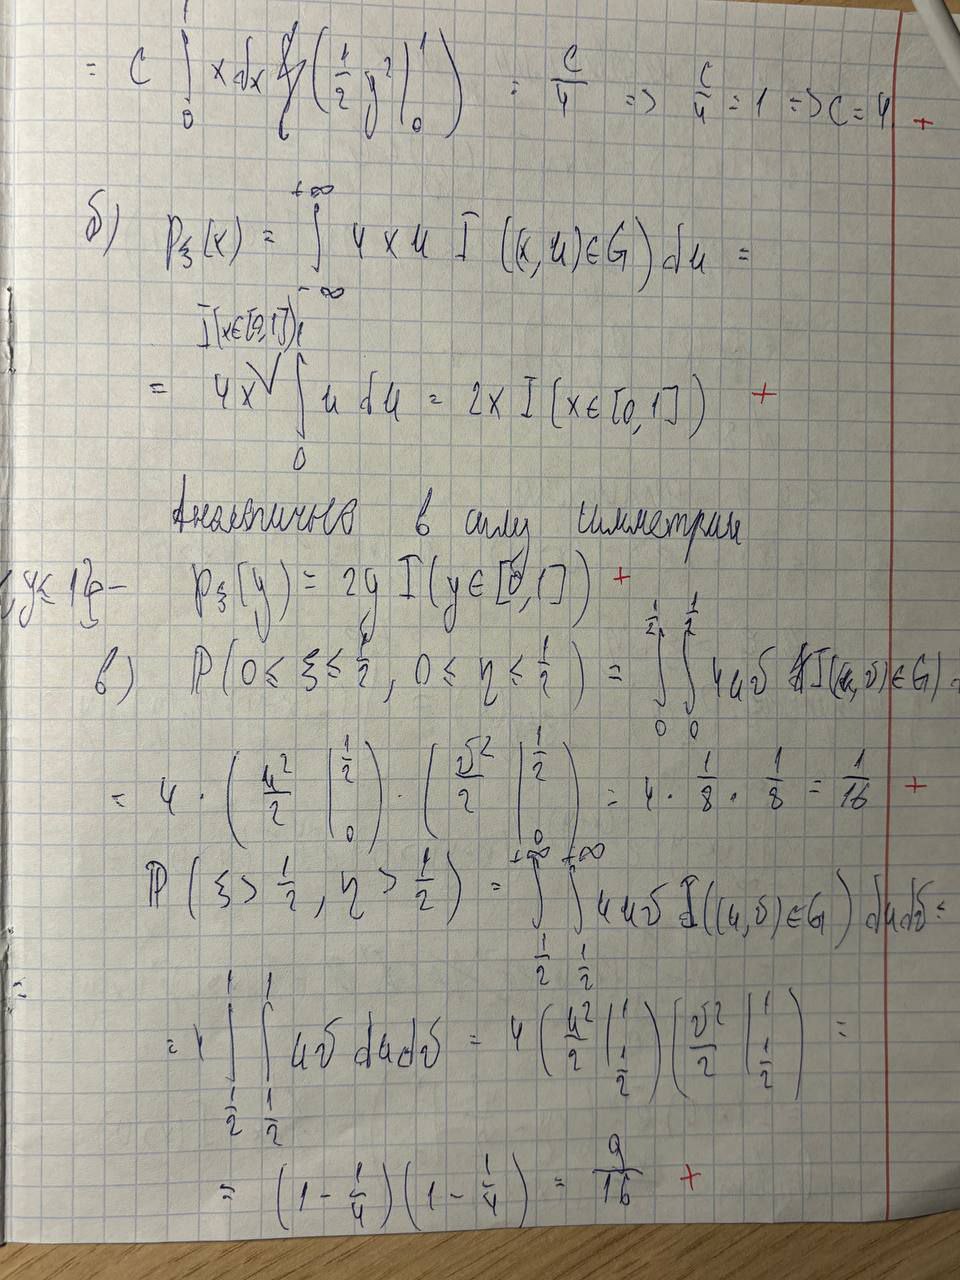 = C ∫₀¹ x dx (1/2 y² |₀¹) = C/4 => C/4 = 1 => C = 4 +
б) p_ξ(x) = ∫_{-∞}^{+∞} 4 x u I ((x, u) ∈ G) du =
I(x∈[0,1])
= 4x √ ∫₀¹ u du = 2x I (x ∈ [0,1]) +
Аналогично в силу симметрии
y ≤ 1} - p_ξ(y) = 2y I (y ∈ [0,1]) +
в) P (0 ≤ ξ ≤ 1/2, 0 ≤ η ≤ 1/2) = ∫₀^{1/2} ∫₀^{1/2} 4uv I((u,v) ∈ G)
= 4 · (u²/2 |₀^{1/2}) · (v²/2 |₀^{1/2}) = 4 · 1/8 · 1/8 = 1/16 +
P (ξ > 1/2, η > 1/2) = ∫_{1/2}^{+∞} ∫_{1/2}^{+∞} 4uv I((u,v) ∈ G) du dv =
= 4 ∫_{1/2}^1 ∫_{1/2}^1 uv du dv = 4 (u²/2 |_{1/2}^1) (v²/2 |_{1/2}^1) =
= (1 - 1/4) (1 - 1/4) = 9/16 +